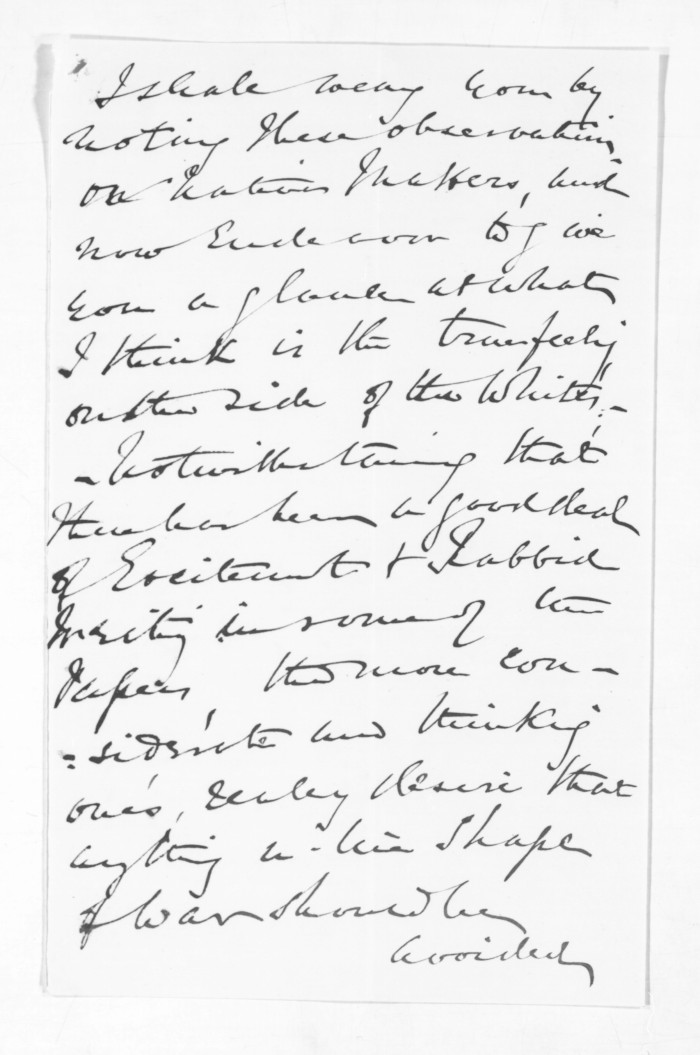 I shall weary you by
noting these observations
on Native Matters, and
now Endeavour to give
you a glance at what
I think is the true feeling
on the side of the Whites. -
- Notwithstanding that
there has been a good deal
of Excitement & Rabbid
Writing in some of the
Papers, the more con -
- siderate and thinking
ones, realey desire that
anything in the Shape
of War should be
avoided